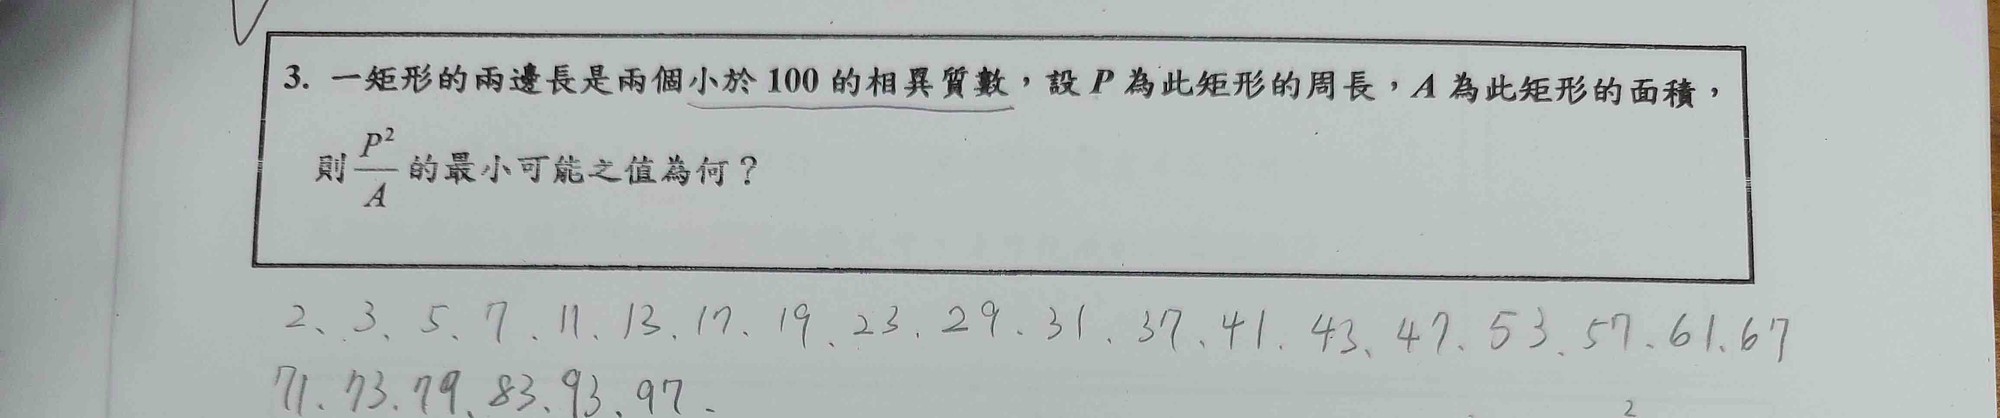 3. 一矩形的兩邊長是兩個小於 100 的相異質數，設 P 為此矩形的周長，A 為此矩形的面積，
則 P²/A 的最小可能之值為何？
2、3、5、7、11、13、17、19、23、29、31、37、41、43、47、53、57、61、67
71、73、79、83、93、97、
2